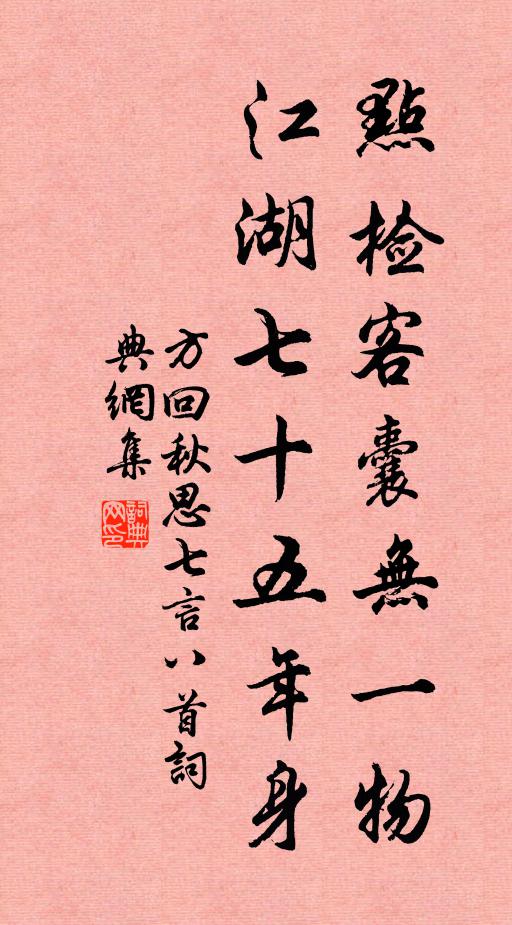 點检客囊無一物
江湖七十五年身
方回秋思七言八首詞
典網集
詞典網印